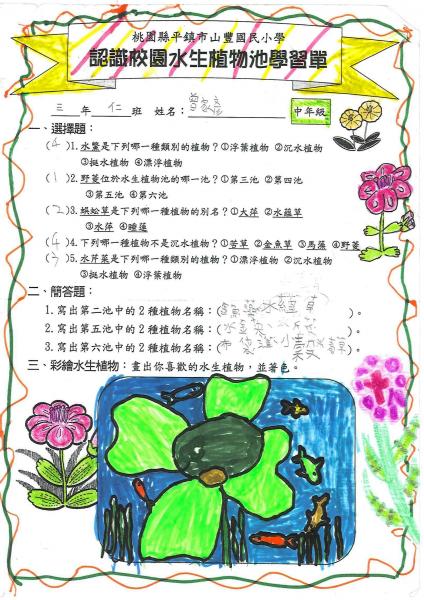 桃園縣平鎮市山豐國民小學
認識校園水生植物池學習單
三 年 仁 班 姓名：曾家
中年級
一、選擇題：
(4)1.水鱉是下列哪一種類別的植物？①浮葉植物 ②沉水植物
③挺水植物 ④漂浮植物
(1)2.野菱位於水生植物池的哪一池？①第三池 ②第四池
③第五池 ④第六池
(2)3.蜈蚣草是下列哪一種植物的別名？①大萍 ②水蘊草
③水萍 ④睡蓮
(4)4.下列哪一種植物不是沉水植物？①苦草 ②金魚草 ③馬藻 ④野菱
(3)5.水芹菜是下列哪一種類別的植物？①漂浮植物 ②沉水植物
③挺水植物 ④浮葉植物
二、簡答題：
1.寫出第二池中的2種植物名稱：( 水蘊草 )。
2.寫出第五池中的2種植物名稱：( 水 )。
3.寫出第六池中的2種植物名稱：( 小 )。
三、彩繪水生植物：畫出你喜歡的水生植物，並著色。